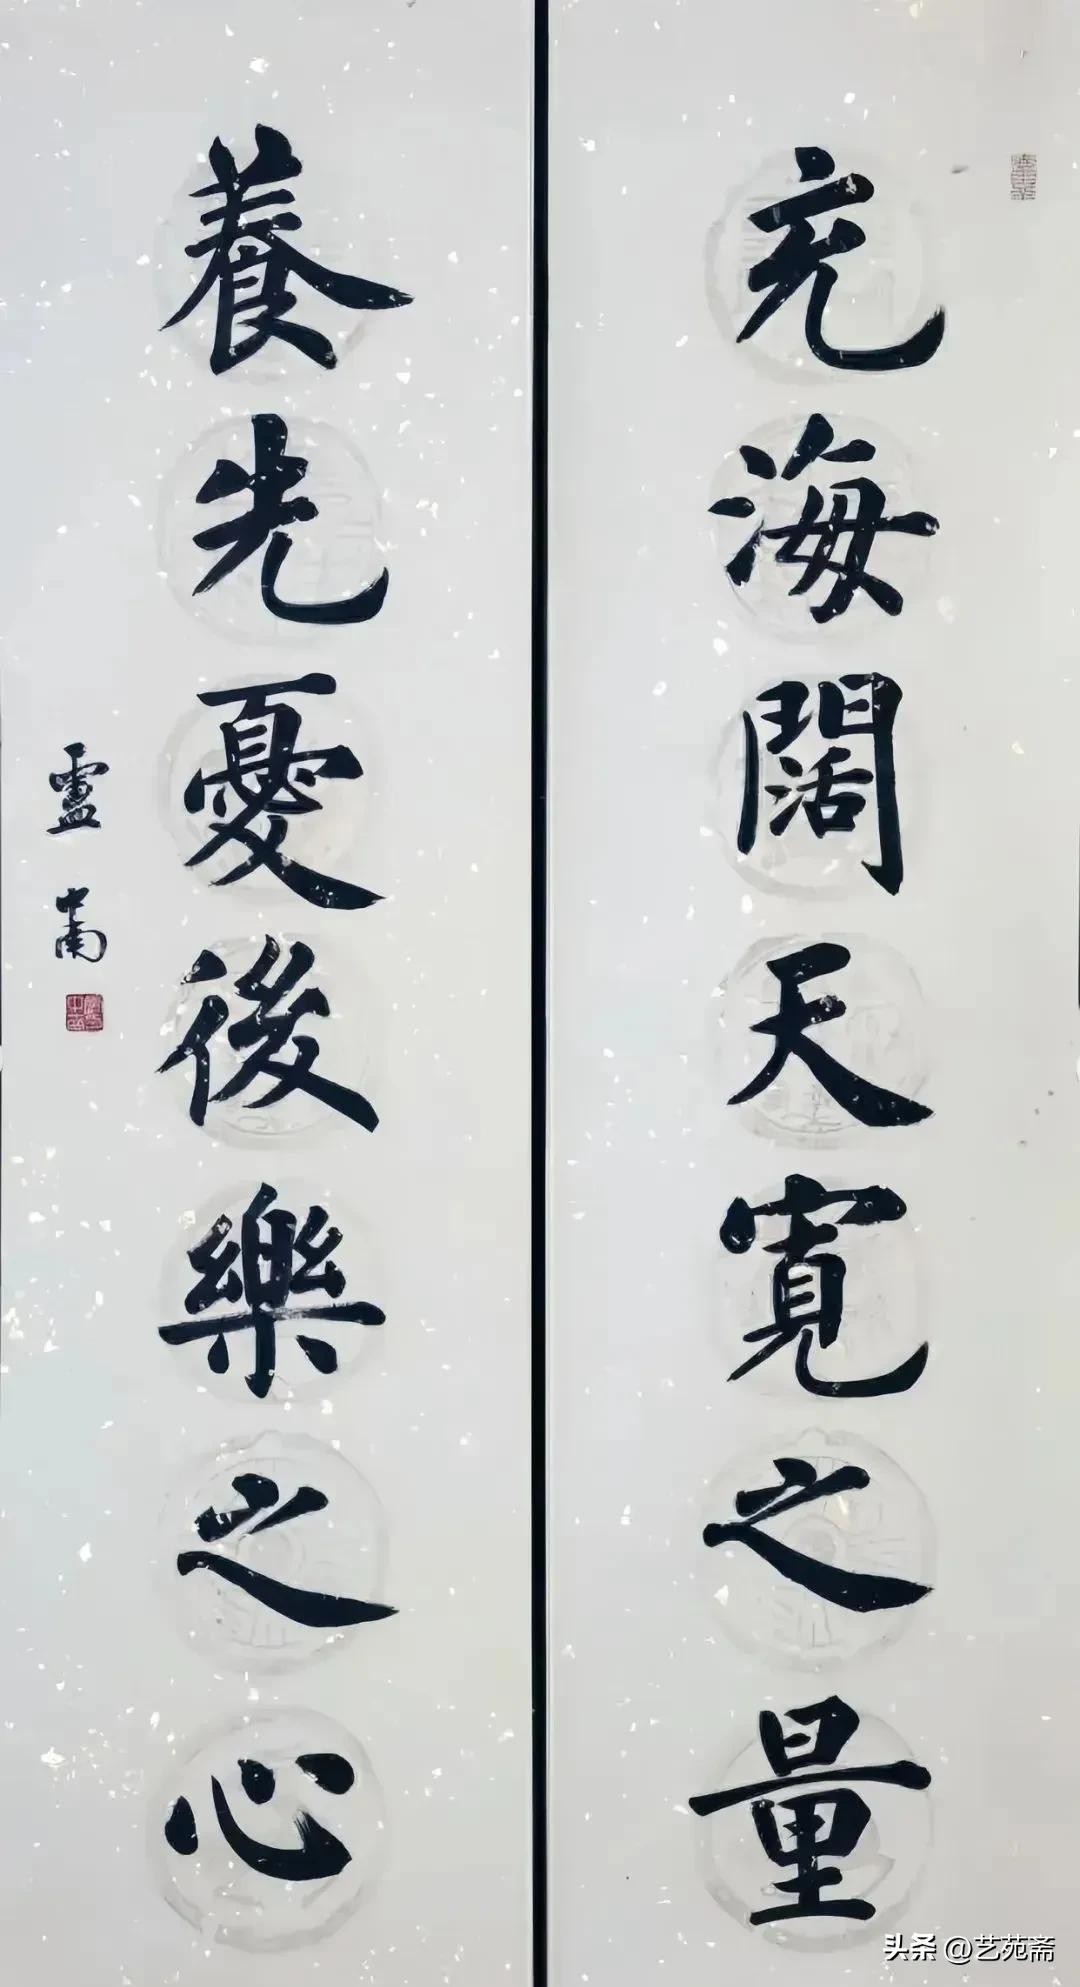 充海闊天寬之量
養先憂後樂之心
盧中南
头条 @艺苑斋